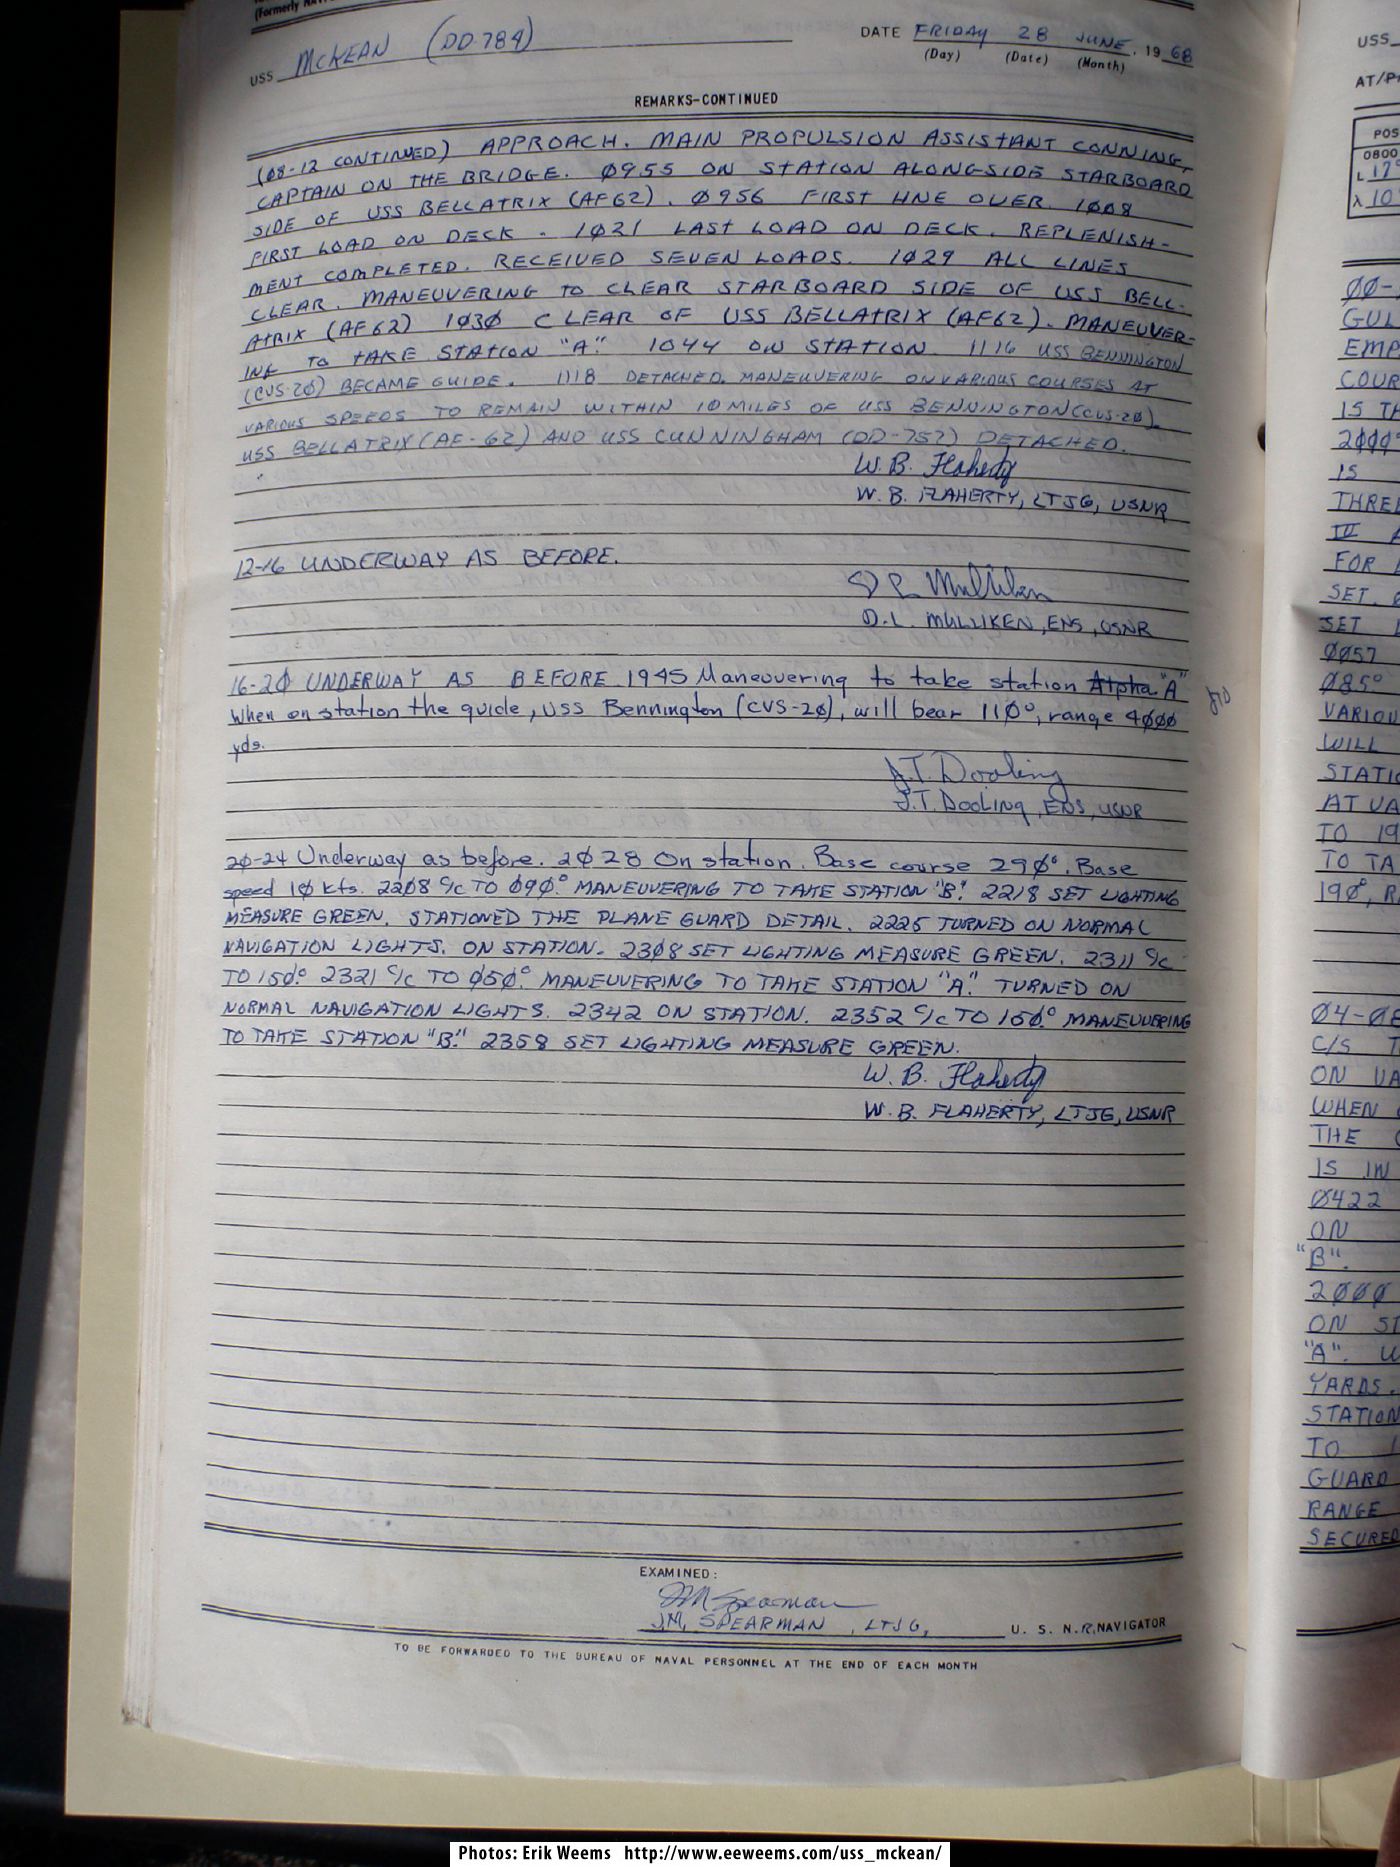 (Formerly
USS MCKEAN (DD-784) DATE FRIDAY 28 JUNE, 19 68
(Day) (Date) (Month)
REMARKS-CONTINUED
(08-12 CONTINUED) APPROACH. MAIN PROPULSION ASSISTANT CONNING,
CAPTAIN ON THE BRIDGE. 0955 ON STATION ALONGSIDE STARBOARD
SIDE OF USS BELLATRIX (AF62). 0956 FIRST LINE OVER. 1008
FIRST LOAD ON DECK. 1021 LAST LOAD ON DECK. REPLENISH-
MENT COMPLETED. RECEIVED SEVEN LOADS. 1029 ALL LINES
CLEAR. MANEUVERING TO CLEAR STARBOARD SIDE OF USS BELL-
ATRIX (AF62) 1030 CLEAR OF USS BELLATRIX (AF62). MANEUVER-
ING TO TAKE STATION "A". 1044 ON STATION 1116 USS BENNINGTON
(CVS-20) BECAME GUIDE. 1118 DETACHED. MANEUVERING ON VARIOUS COURSES AT
VARIOUS SPEEDS TO REMAIN WITHIN 10 MILES OF USS BENNINGTON (CVS-20).
USS BELLATRIX (AF-62) AND USS CUNNINGHAM (DD-752) DETACHED.
W. B. Flaherty
W. B. FLAHERTY, LTJG, USNR
12-16 UNDERWAY AS BEFORE.
D L Mulliken
D. L. MULLIKEN, ENS, USNR
16-20 UNDERWAY AS BEFORE 1945 Maneuvering to take station Alpha "A"
When on station the guide, USS Bennington (CVS-20), will bear 110°, range 4000
yds.
J.T. Dooling
J.T. Dooling, ENS, USNR
20-24 Underway as before. 2028 On station. Base course 290°. Base
speed 10 kts. 2208 C/C TO 090°. MANEUVERING TO TAKE STATION "B". 2218 SET LIGHTING
MEASURE GREEN. STATIONED THE PLANE GUARD DETAIL. 2225 TURNED ON NORMAL
NAVIGATION LIGHTS. ON STATION. 2308 SET LIGHTING MEASURE GREEN. 2311 C/C
TO 150°. 2321 C/C TO 050°. MANEUVERING TO TAKE STATION "A". TURNED ON
NORMAL NAVIGATION LIGHTS. 2342 ON STATION. 2352 C/C TO 160°. MANEUVERING
TO TAKE STATION "B". 2358 SET LIGHTING MEASURE GREEN.
W. B. Flaherty
W. B. FLAHERTY, LTJG, USNR
EXAMINED:
JM Spearman
J.M. SPEARMAN, LTJG, U. S. N.R. NAVIGATOR
TO BE FORWARDED TO THE BUREAU OF NAVAL PERSONNEL AT THE END OF EACH MONTH
USS
AT/P
POS
0800
L 17
λ 10
00-
GUL
EMP
COUR
IS TH
2000
IS
THREE
III A
FOR
SET.
SET
0057
085°
VARIOU
WILL
STATIO
AT VA
TO 19
TO TA
190°, R
04-08
C/S T
ON VA
WHEN
THE
IS IN
0422
ON
"B".
2000
ON ST
"A". W
YARDS.
STATION
TO
GUARD
RANGE
SECURED
Photos: Erik Weems http://www.eeweems.com/uss_mckean/